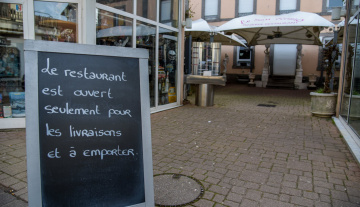 Le restaurant
est ouvert
seulement pour
les livraisons
et à emporter.